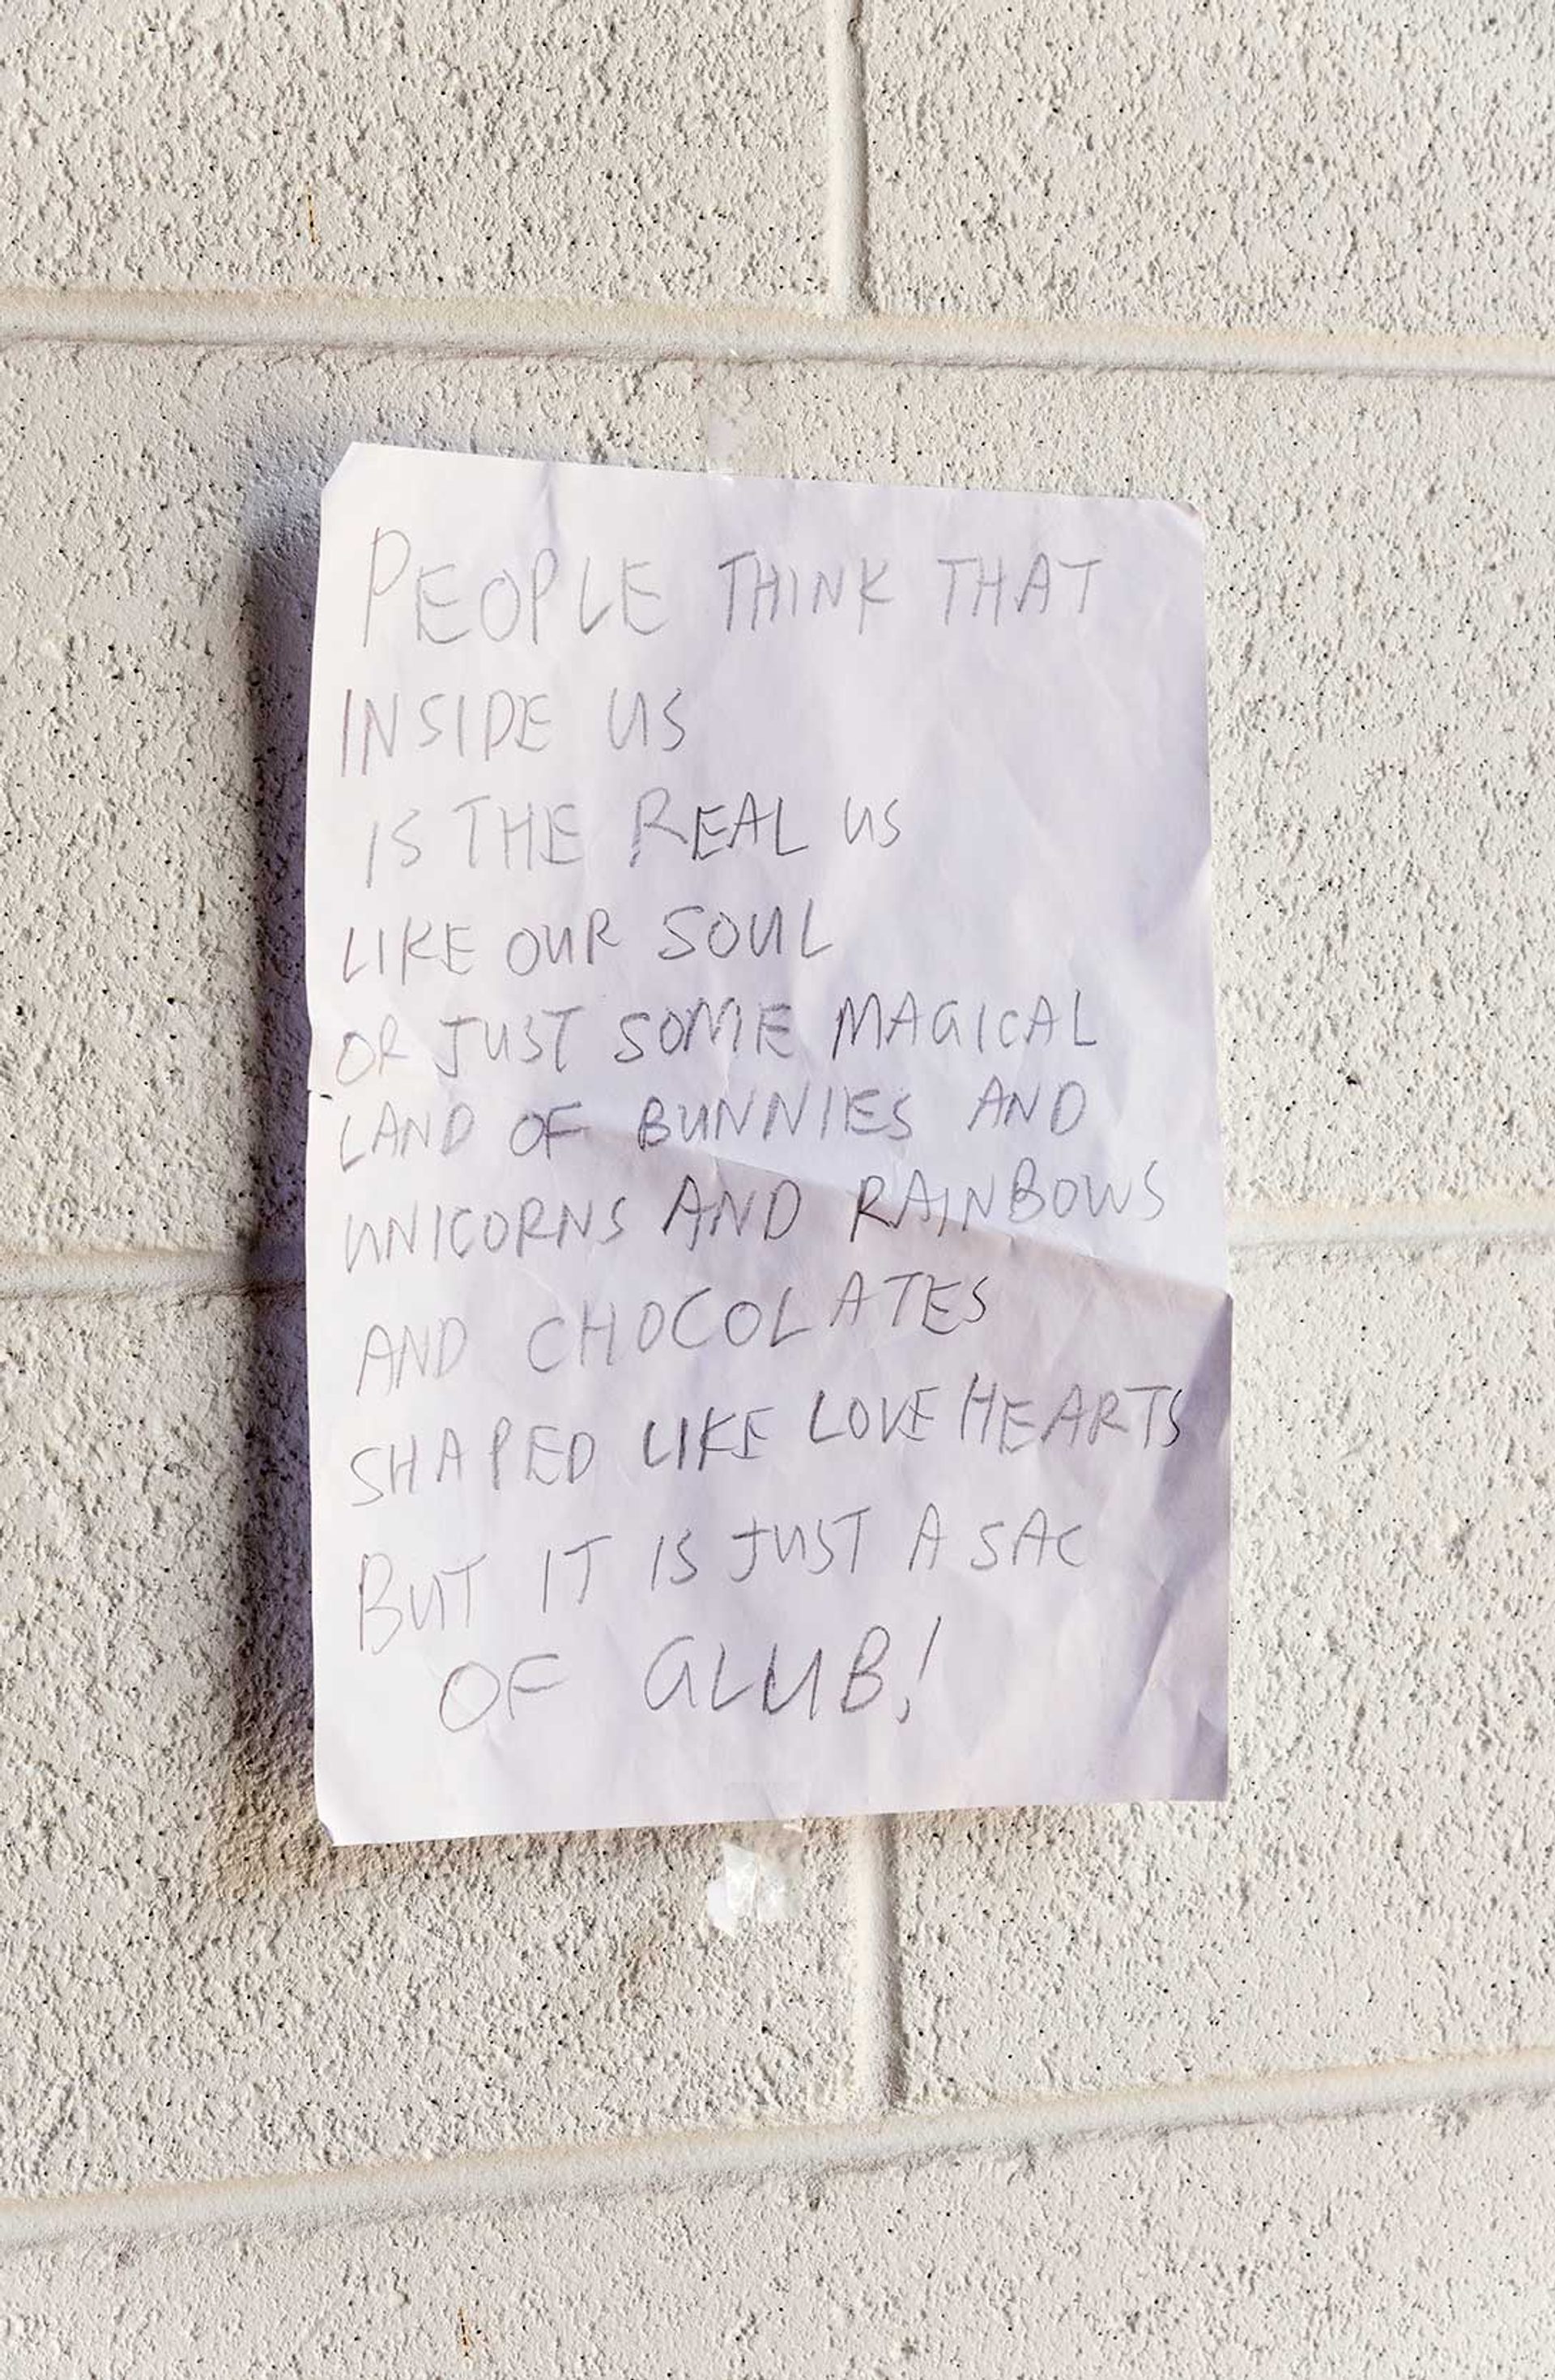 PEOPLE THINK THAT
INSIDE US
IS THE REAL US
LIKE OUR SOUL
OR JUST SOME MAGICAL
LAND OF BUNNIES AND
UNICORNS AND RAINBOWS
AND CHOCOLATES
SHAPED LIKE LOVE HEARTS
BUT IT IS JUST A SAC
OF GLUB!